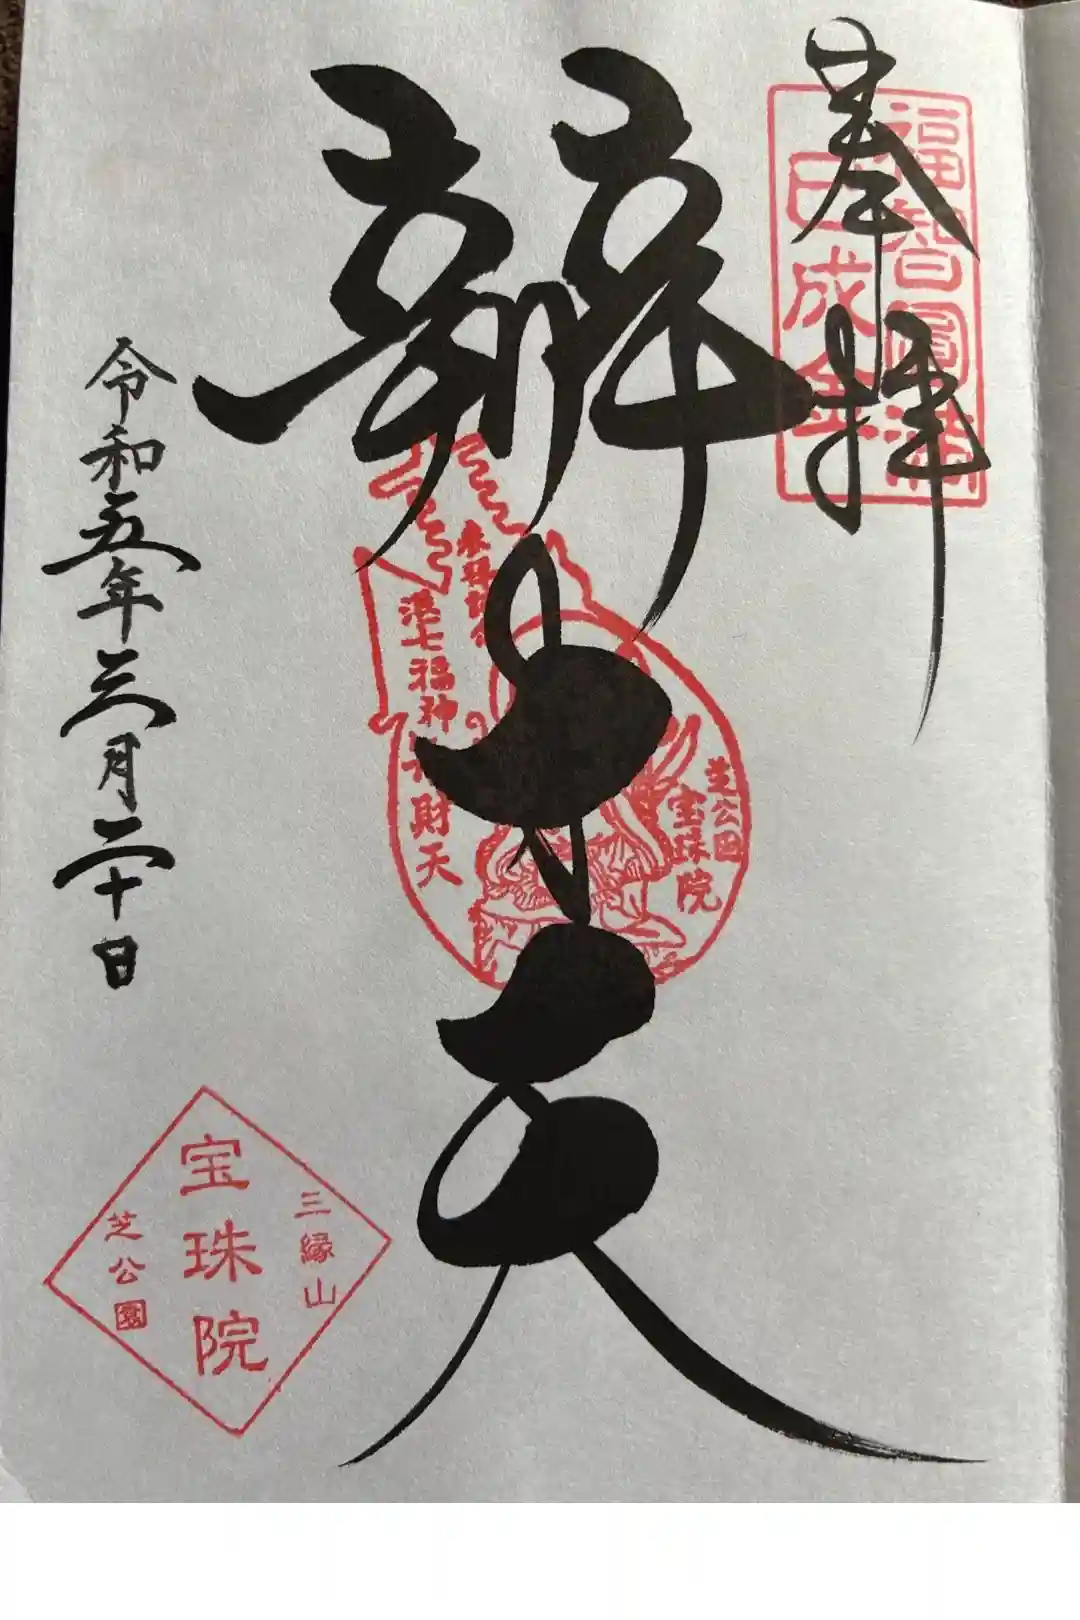 奉拝
福智圓満
巳成金
辨才天
港七福神
弁財天
芝公園
宝珠院
令和五年三月二十日
三縁山
宝珠院
芝公園